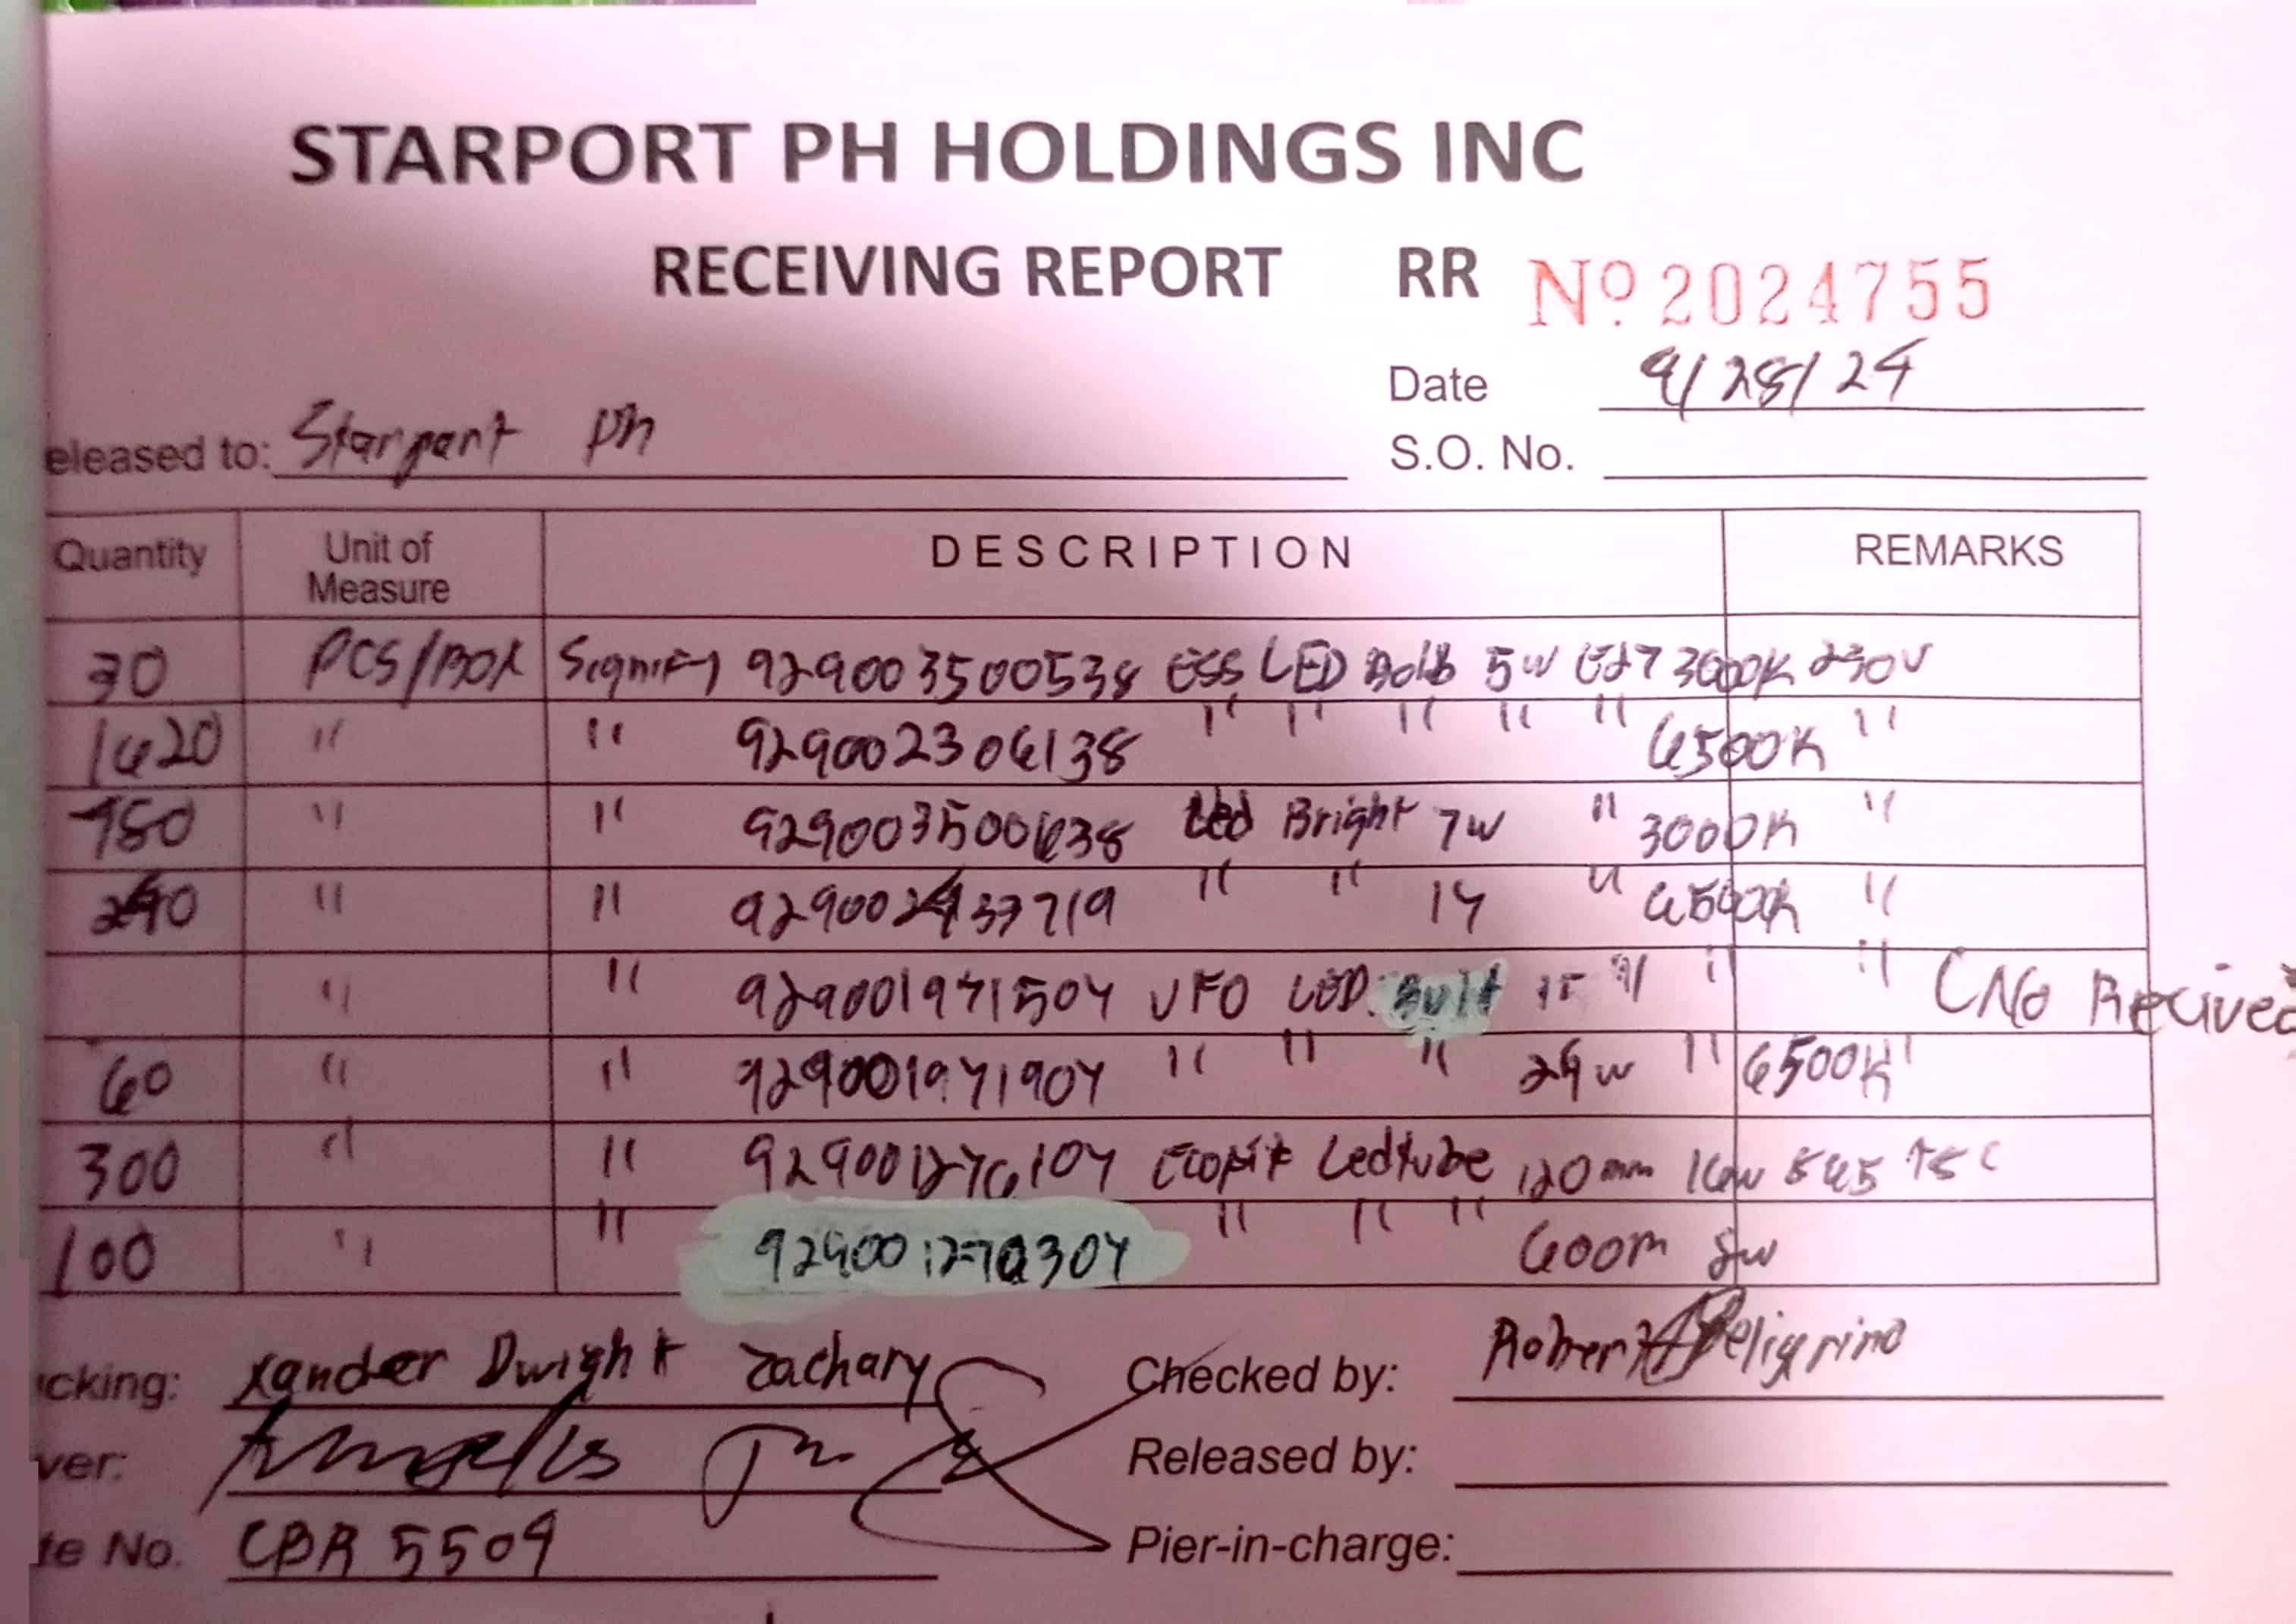 STARPORT PH HOLDINGS INC
RECEIVING REPORT RR Nº 2024755
Date 9/28/24
eleased to: Starpart Ph
S.O. No.
Quantity Unit of Measure DESCRIPTION REMARKS
30 PCS/BOX Signify 929003500538 ESS LED Bolb 5w E27 3000K 230V
1620 " " 929002306138 " " " " " 6500K "
780 " " 929003500638 Led Bright 7w " 3000K "
240 " " " " 14 " 6500K "
" " 929001971504 UFO LED Bult 15 " " " CNo Recived
60 " " 929001971904 " " " 24w " 6500K "
300 " " 929001276104 Ecofit Ledtube 120mm 16w
100 " " " " " 600m 8w
cking: Xander Dwight Zachary Checked by: Robert Peligrino
ver: Released by:
te No. CBR 5509 Pier-in-charge: